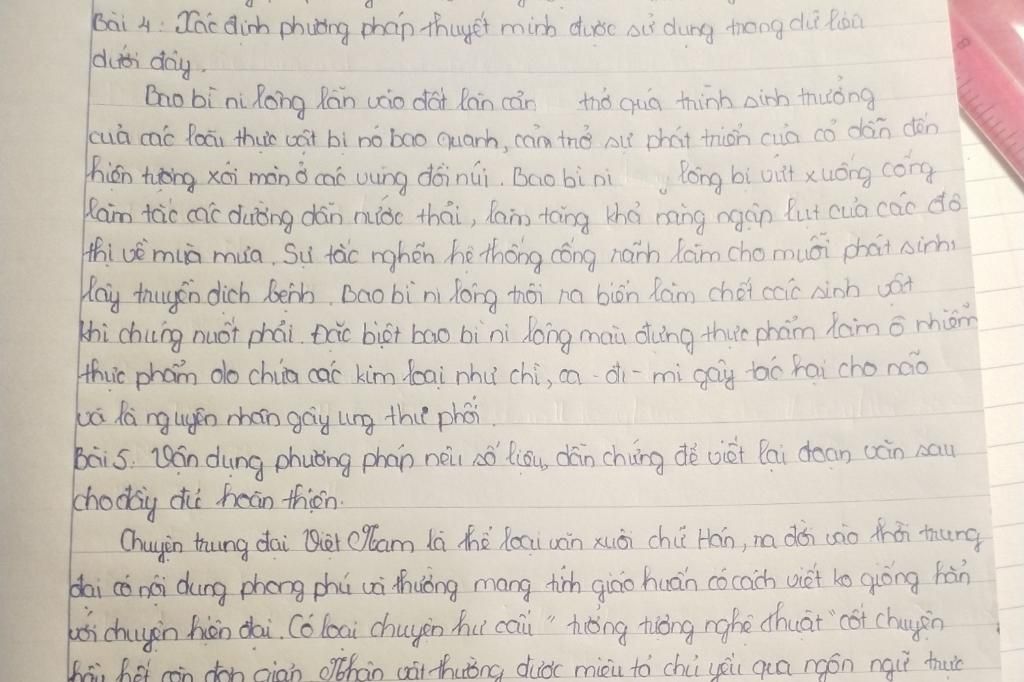 Bài 4: Xác định phương pháp thuyết minh được sử dụng trong dữ liệu
dưới đây.
Bao bì ni lông lẫn vào đất làm cản trở quá trình sinh trưởng
của các loài thực vật bị nó bao quanh, cản trở sự phát triển của cỏ dẫn đến
hiện tượng xói mòn ở các vùng đồi núi. Bao bì ni lông bị vứt xuống cống
làm tắc các đường dẫn nước thải, làm tăng khả năng ngập lụt của các đô
thị về mùa mưa. Sự tắc nghẽn hệ thống cống rãnh làm cho muỗi phát sinh,
lây truyền dịch bệnh. Bao bì ni lông trôi ra biển làm chết các sinh vật
khi chúng nuốt phải. Đặc biệt bao bì ni lông màu đựng thực phẩm làm ô nhiễm
thực phẩm do chứa các kim loại như chì, ca-đi-mi gây tác hại cho não
và là nguyên nhân gây ung thư phổi.
Bài 5. Vận dụng phương pháp nêu số liệu, dẫn chứng để viết lại đoạn văn sau
cho đầy đủ hoàn thiện.
Chuyện trung đại Việt Nam là thể loại văn xuôi chữ Hán, ra đời vào thời trung
đại có nội dung phong phú và thường mang tính giáo huấn có cách viết ko giống hẳn
với chuyện hiện đại. Có loại chuyện hư cấu "tưởng tượng nghệ thuật" cốt chuyện
hầu hết còn đơn giản. Nhân vật thường được miêu tả chủ yếu qua ngôn ngữ trực